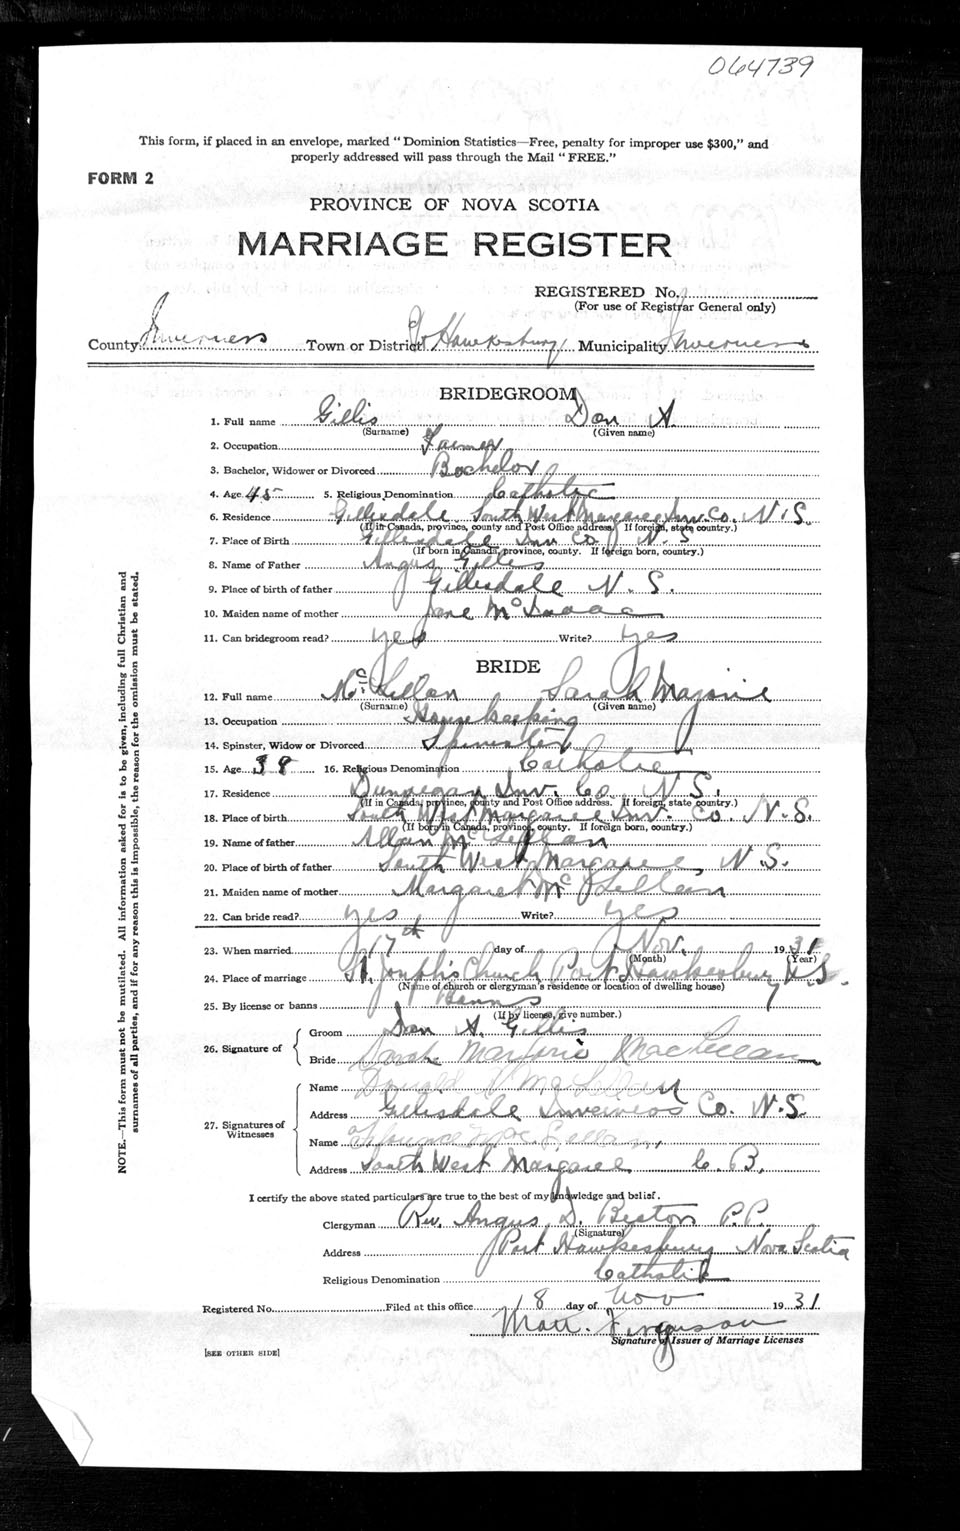 064739
This form, if placed in an envelope, marked "Dominion Statistics—Free, penalty for improper use $300," and
properly addressed will pass through the Mail "FREE."
FORM 2
PROVINCE OF NOVA SCOTIA
MARRIAGE REGISTER
REGISTERED No.
(For use of Registrar General only)
County Inverness Town or District Pt Hawkesbury Municipality Inverness
BRIDEGROOM
1. Full name Gillis Don A.
(Surname) (Given name)
2. Occupation Farmer
3. Bachelor, Widower or Divorced Bachelor
4. Age 45 5. Religious Denomination Catholic
6. Residence Gillisdale South West Margaree Inv. Co. N.S.
(If in Canada, province, county and Post Office address. If foreign, state country.)
7. Place of Birth Gillisdale Inv Co N.S
(If born in Canada, province, county. If foreign born, country.)
8. Name of Father Angus Gillis
9. Place of birth of father Gillisdale N.S.
10. Maiden name of mother Jane McIsaac
11. Can bridegroom read? yes Write? yes
BRIDE
12. Full name McLellan Sarah Majorie
(Surname) (Given name)
13. Occupation Housekeeping
14. Spinster, Widow or Divorced Spinster
15. Age 38 16. Religious Denomination Catholic
17. Residence Dunvegan Inv. Co. N.S.
(If in Canada, province, county and Post Office address. If foreign, state country.)
18. Place of birth South West Margaree Inv. Co. N.S.
(If born in Canada, province, county. If foreign born, country.)
19. Name of father Allan McLellan
20. Place of birth of father South West Margaree, N.S.
21. Maiden name of mother Margaret McLellan
22. Can bride read? yes Write? yes
23. When married 17th day of Nov. 1931
(Month) (Year)
24. Place of marriage St. Joseph's Church Port Hawkesbury N.S.
(Name of church or clergyman's residence or location of dwelling house)
25. By license or banns Banns
(If by license, give number.)
26. Signature of Groom Don A. Gillis
Bride Sarah Marjorie MacLellan
27. Signatures of Witnesses Name Donald McLellan
Address Gillisdale Inverness Co. N.S.
Name Florence McLellan
Address South West Margaree C.B.
I certify the above stated particulars are true to the best of my knowledge and belief.
Clergyman Rev. Angus D. Beaton P.P.
(Signature)
Address Port Hawkesbury Nova Scotia
Religious Denomination Catholic
Registered No. Filed at this office 18 day of Nov 1931
Matt. Ferguson
Signature of Issuer of Marriage Licenses
[SEE OTHER SIDE]
NOTE.—This form must not be mutilated. All information asked for is to be given, including full Christian and
surnames of all parties, and if for any reason this is impossible, the reason for the omission must be stated.